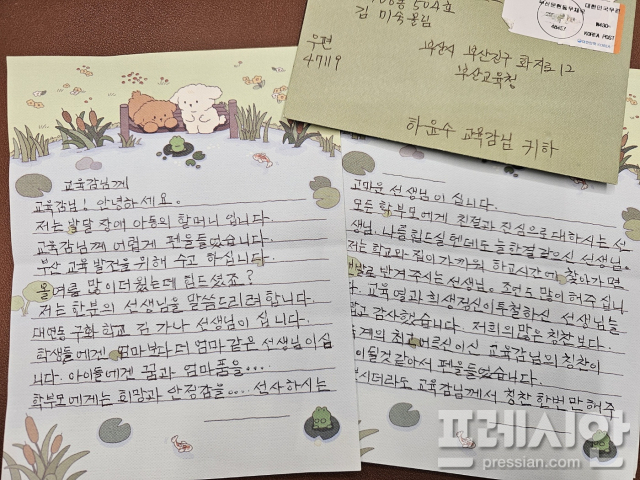 504호
김 미숙올림
우편
47119
부산시 부산진구 화지로12
부산교육청
하윤수 교육감님 귀하
대한민국우편
KOREA POST
교육감님께
교육감님! 안녕하세요.
저는 발달 장애 아동의 할머니 입니다.
교육감님께 어렵게 펜을들었습니다.
부산 교육 발전을 위해 수고 하십니다.
올여름 많이더웠는데 힘드셨죠?
저는 한분의 선생님을 말씀드리려 합니다.
대연동 구화 학교 김 가나 선생님이 십니다.
학생들에겐 엄마보다더 엄마같은 선생님이십
니다. 아이들에겐 꿈과 엄마품을...
학부모에게는 희망과 안정감을... 선사하시는
고마운 선생님이 십니다.
모든 학부모에게 친절과 진심으로 대하시는 선
생님. 나름 힘드실텐데도 늘한결같으신 선생님.
저는 학교와 집이가까워 하교시간에 찾아가면
반겨주시는 선생님. 조언도 많이해주십
니다. 교육열과 희생정신이투철하신 선생님을
감사했습니다. 저희의많은칭찬보다.
최고어른이신 교육감님의칭찬이
이될것같아서 펜을들었습니다.
시더라도 교육감님께서 칭찬 한번만해주
프레시안
pressian.com